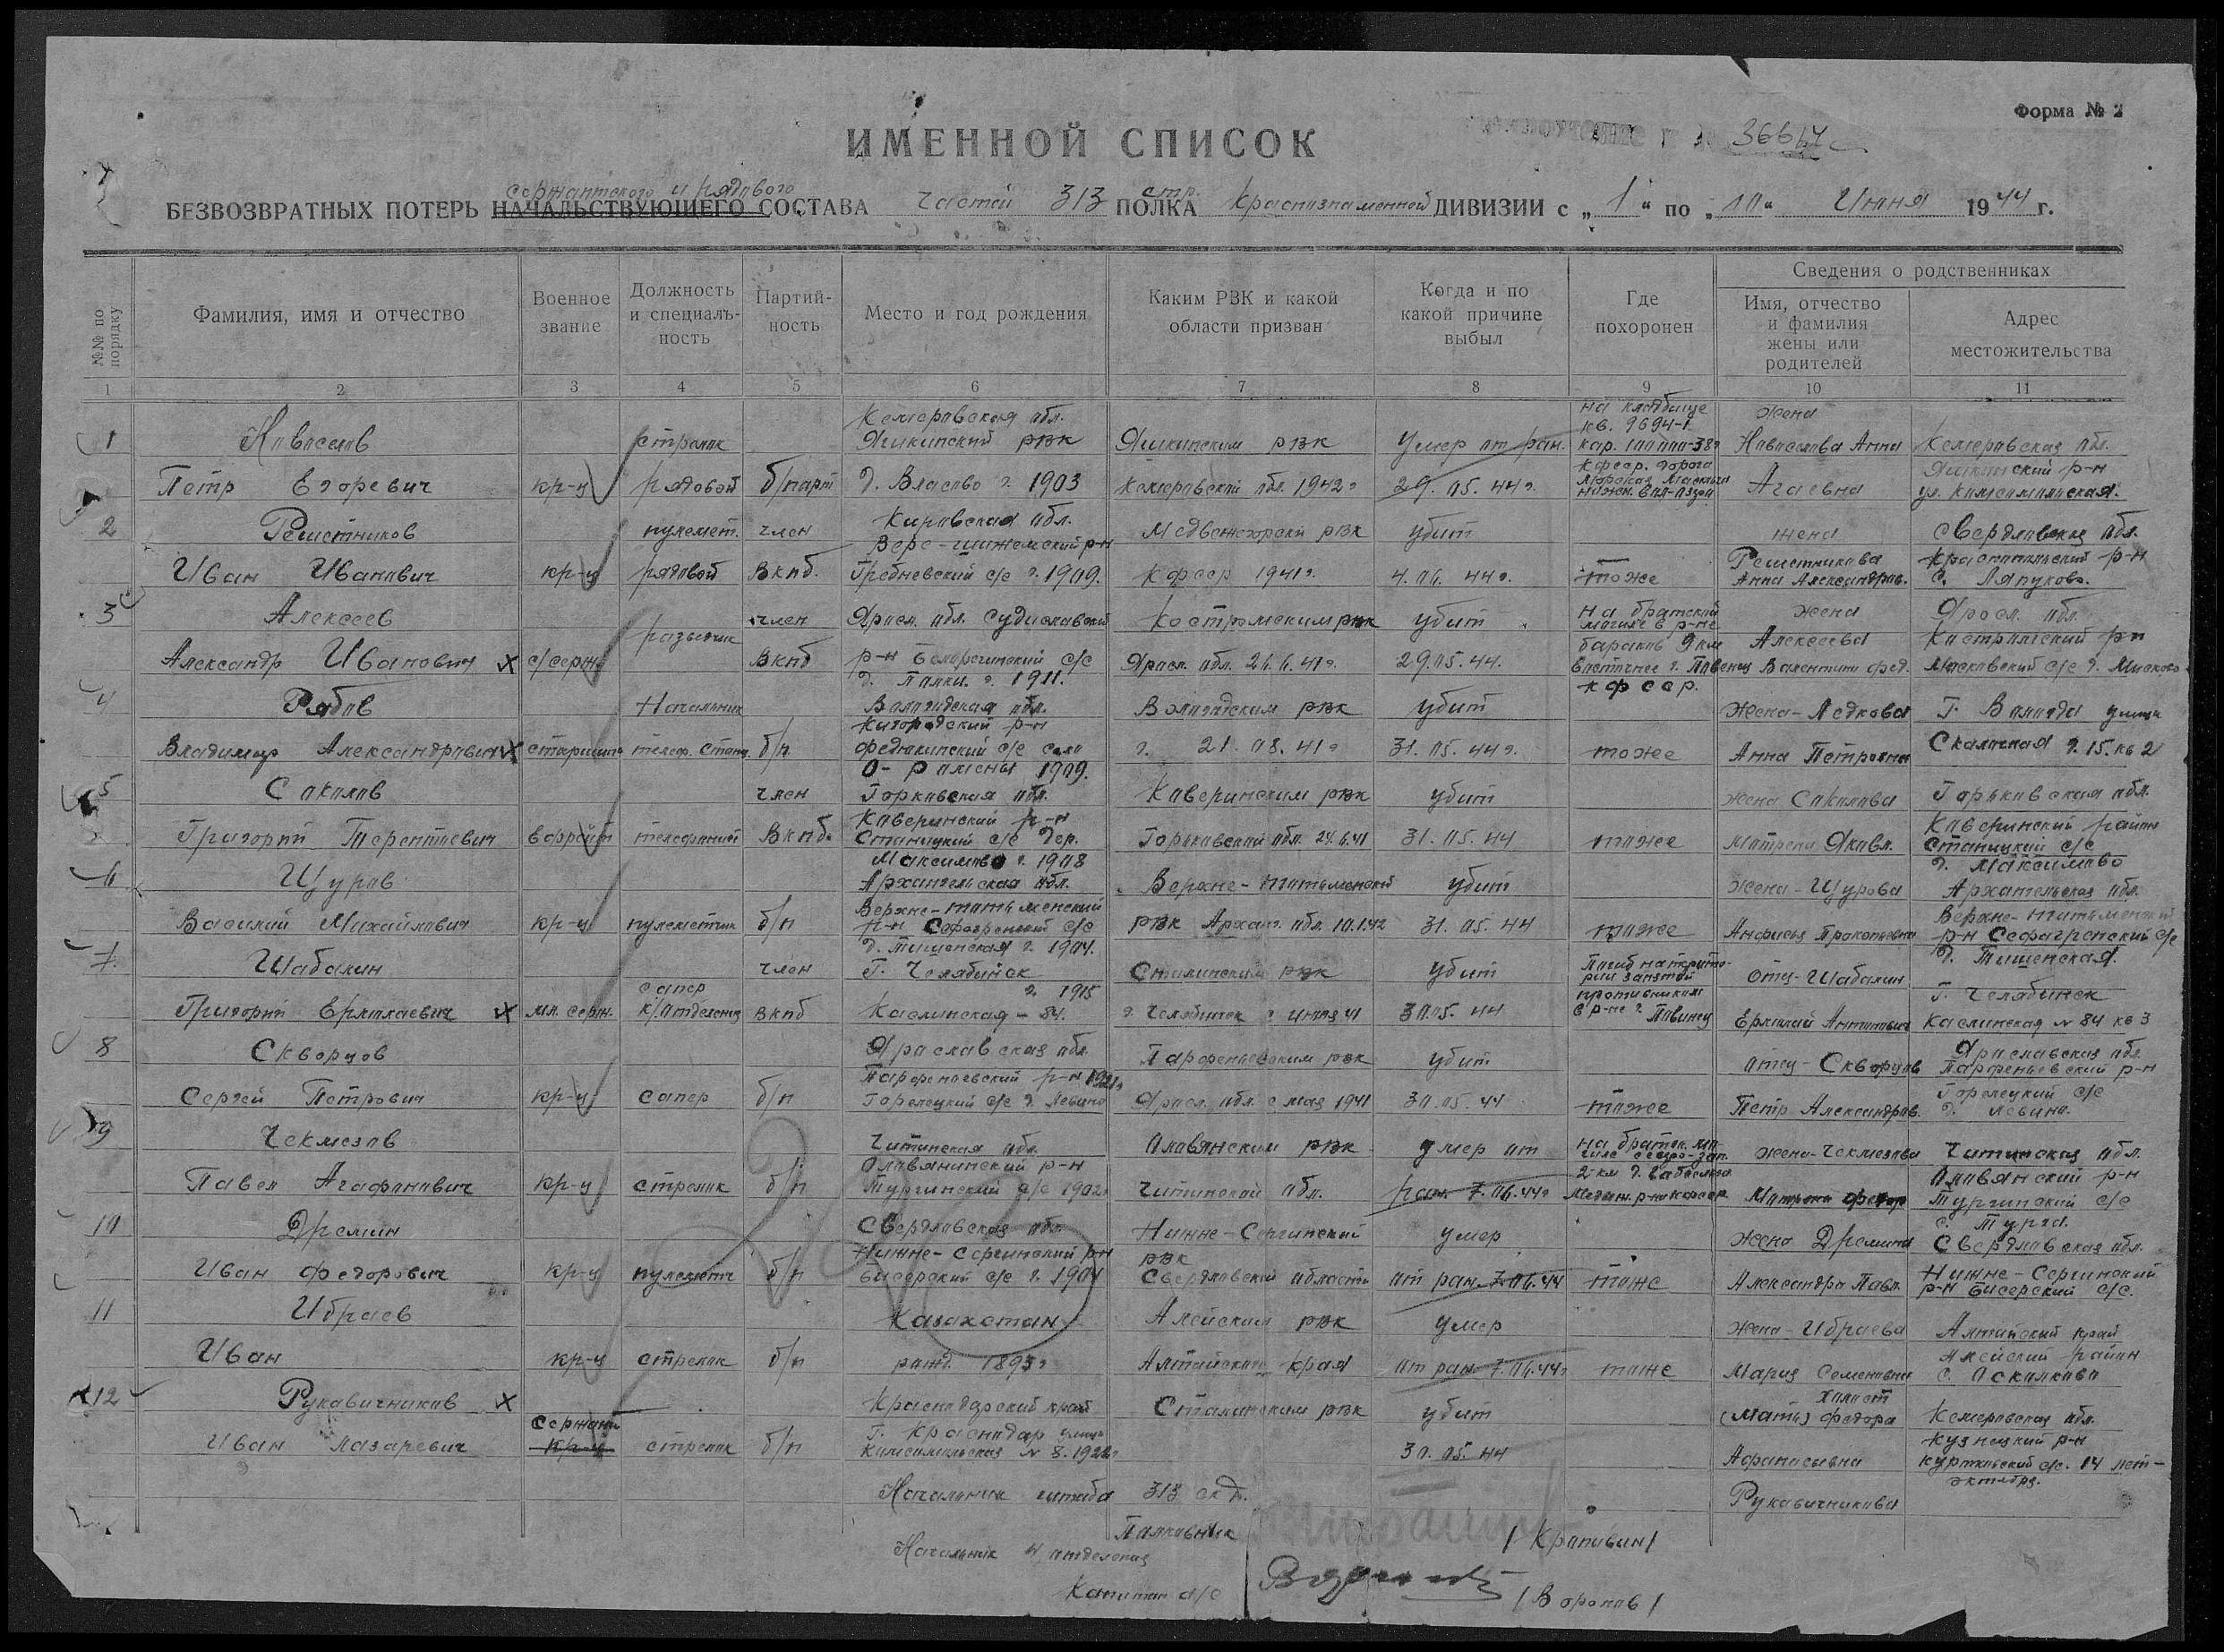 Форма № 2
36617с
ИМЕННОЙ СПИСОК
сержантского и рядового
БЕЗВОЗВРАТНЫХ ПОТЕРЬ НАЧАЛЬСТВУЮЩЕГО СОСТАВА частей 313 ПОЛКА стр. Краснознаменной ДИВИЗИИ с „1“ по „10“ Июня 1944 г.
№№ по порядку
Фамилия, имя и отчество
Военное звание
Должность и специаль-ность
Партий-ность
Место и год рождения
Каким РВК и какой области призван
Когда и по какой причине выбыл
Где похоронен
Сведения о родственниках
Имя, отчество и фамилия жены или родителей
Адрес местожительства
1 2 3 4 5 6 7 8 9 10 11
1 Новоселов стрелок Кемеровская обл. Яшкинский рвк Яшкинским рвк Умер от ран. на кладбище кв. 9694-1 жена Новоселова Анна Кемеровская обл.
Петр Егоревич кр-ц рядовой б/парт д. Власово г. 1903 Кемеровской обл. 1942г 29.05.44г. Кфсср. дорога Агаевна Яшкинский р-н ул. Комсомольская.
2 Решетников пулемет. член Кировская обл. Медвежегорски рвк убит жена Свердловская обл.
Иван Иванович кр-ц рядовой ВКПб. Верс-шижемский р-н Гребневский с/с г. 1909. Кфсср 1941г. 4.06.44г. тоже Решетникова Анна Александров. р-н с. Ляпуково.
3 Алексеев разведчик член Яросл. обл. Судиславский Костромским рвк убит на братской могиле в р-не жена Яросл. обл.
Александр Иванович с/серж. ВКПб р-н с/с д. Палки. г. 1911. Яросл. обл. 26.6.41г. 29.05.44. бараков 9 км восточнее г. Повенец Кфсср. Алексеева Валентина Фед. Костромский р-н Мисковский с/с д. Мисково
4 Рябов Начальник Вологодская обл. Вологодским рвк убит Жена-Ледкова г. Вологда улица
Владимир Александрович старшина телеф. станц. б/п р-н с/с село 1909. г. 21.08.41г 31.05.44г. тоже Анна Петровна д. 15. кв 2
5 Соколов член Горковская обл. Коверинским рвк убит жена Соколова Горьковская обл.
Григорий Терентиевич ефрейт телефонист ВКПб. Коверинский р-н Станицкий с/с дер. Максимово г. 1908 Горьковской обл. 24.6.41 31.05.44 тоже Матрена Яковл. Коверинский район Станицкий с/с д. Максимово
6 Щуров Архангельская обл. Верхне-тотьменский убит жена-Щурова Архангельская обл.
Василий Михайлович кр-ц пулеметчик б/п Верхне-тотьменский р-н с/с д. Тишенская г. 1904. рвк Архан. обл. 10.1.42 31.05.44 тоже Анфиса Прокопьевна Верхне-тотьменский р-н с/с д. Тишенская.
7. Шабалин сапер член г. Челябинск Сталинским рвк убит Погиб на террито-рии занятой отец-Шабалин
Григорий Ермолаевич мл. серж. к/отделения ВКПб г. 1915 Каслинская-84. г. Челябинск с июля 41 30.05.44 противником в р-не г. Повенец Ермолай Антонович г. Челябинск Каслинская № 84 кв 3
8 Скворцов Ярославская обл. Парфеньевским рвк убит отец-Скворцов Ярославская обл.
Сергей Петрович кр-ц сапер б/п Парфеньевский р-н 1921г Горелецкий с/с д. Левино Яросл. обл. с мая 1941 30.05.44 тоже Петр Александров. Парфеньевский р-н Горелецкий с/с д. Левино.
9 Чекмезов Читинская обл. Оловянским рвк умер от на братск. мо-гиле жена-Чекмезова Читинская обл.
Павел Агафонович кр-ц стрелок б/п Оловянинский р-н Тургинский с/с 1902г Читинской обл. ран. 7.06.44г 2-км Матрена Федор Оловянский р-н Тургинский с/с с. Турга.
10 Дремин Свердловская обл. Нижне-Сергинский умер жена Дремина Свердловская обл.
Иван Федорович кр-ц пулеметч б/п Нижне-Сергинский р-н Бисерский с/с г. 1904 рвк Свердловской области от ран. 7.06.44 тоже Александра Павл. Нижне-Сергинский р-н Бисерский с/с.
11 Ибраев Казахстан Алейским рвк умер жена-Ибраева Алтайский край
Иван кр-ц стрелок б/п рожд. 1893г Алтайского края от ран. 7.06.44г тоже Мария Семеновна Алейский район
12 Рукавичников Краснодарский край Сталинским рвк убит (мать) Федора Кемеровская обл.
Иван Лазаревич сержант кр-ц стрелок б/п г. Краснодар улица Комсомольская № 8. 1922г 30.05.44 Афанасьевна Рукавичникова Кузнецкий р-н с/с. 14 лет-октября.
Начальник штаба 313 скд.
Полковник /Крапивин/
Начальник 4 отделения
Капитан а/с /Воронов/